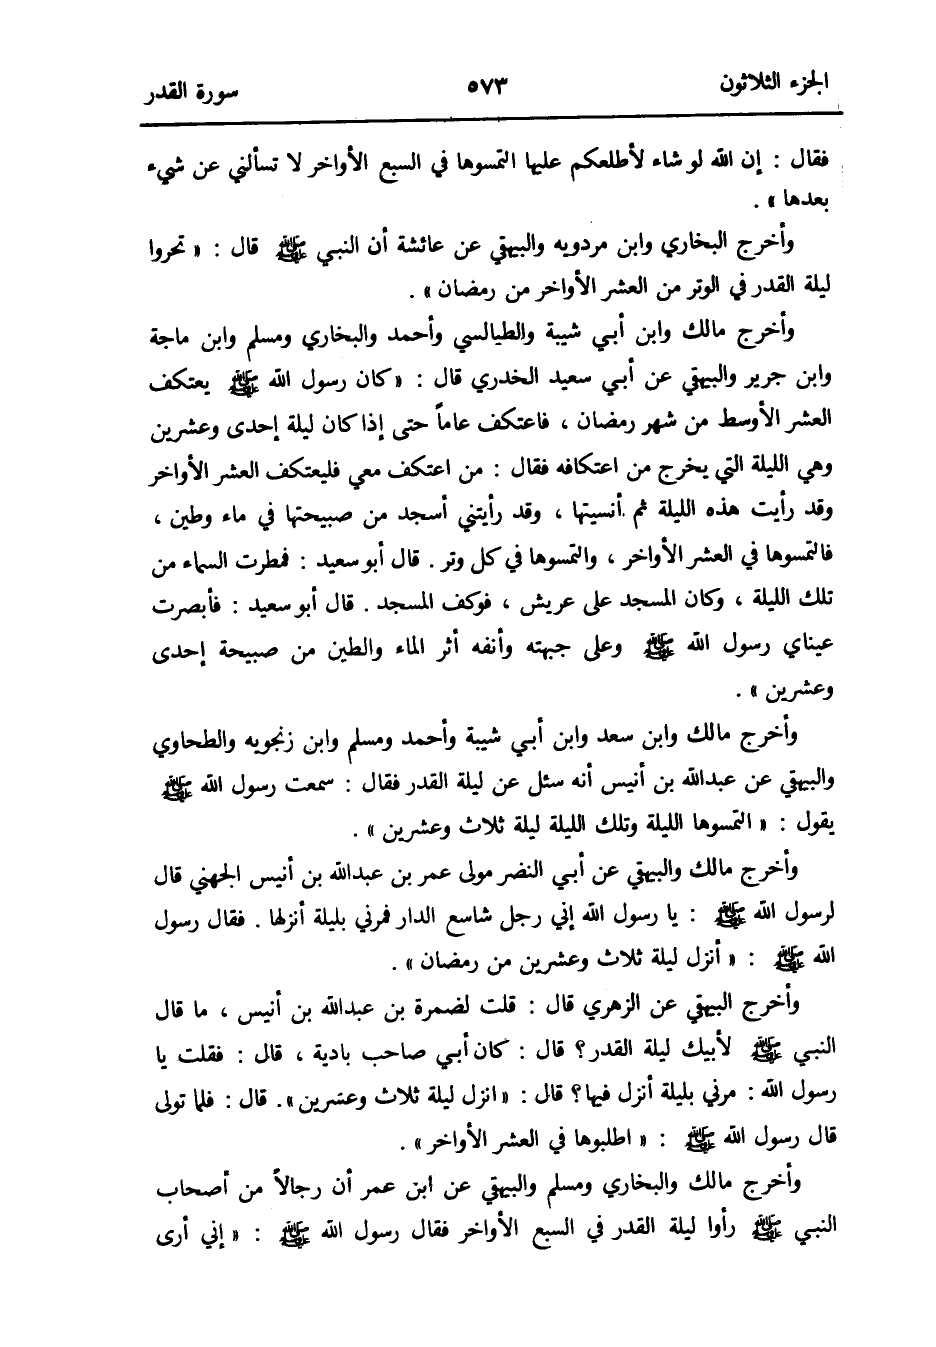 الجزء الثلاثون ٥٧٣ سورة القدر
فقال : إن الله لو شاء لأطلعكم عليها التمسوها في السبع الأواخر لا تسألني عن شيء
بعدها » .
وأخرج البخاري وابن مردويه والبيهقي عن عائشة أن النبي ﷺ قال : « تحروا
ليلة القدر في الوتر من العشر الأواخر من رمضان » .
وأخرج مالك وابن أبي شيبة والطيالسي وأحمد والبخاري ومسلم وابن ماجة
وابن جرير والبيهقي عن أبي سعيد الخدري قال : « كان رسول الله ﷺ يعتكف
العشر الأوسط من شهر رمضان ، فاعتكف عاماً حتى إذا كان ليلة إحدى وعشرين
وهي الليلة التي يخرج من اعتكافه فقال : من اعتكف معي فليعتكف العشر الأواخر
وقد رأيت هذه الليلة ثم أنسيتها ، وقد رأيتني أسجد من صبيحتها في ماء وطين ،
فالتمسوها في العشر الأواخر ، والتمسوها في كل وتر . قال أبو سعيد : فمطرت السماء من
تلك الليلة ، وكان المسجد على عريش ، فوكف المسجد . قال أبو سعيد : فأبصرت
عيناي رسول الله ﷺ وعلى جبهته وأنفه أثر الماء والطين من صبيحة إحدى
وعشرين » .
وأخرج مالك وابن سعد وابن أبي شيبة وأحمد ومسلم وابن زنجويه والطحاوي
والبيهقي عن عبدالله بن أنيس أنه سئل عن ليلة القدر فقال : سمعت رسول الله ﷺ
يقول : « التمسوها الليلة وتلك الليلة ليلة ثلاث وعشرين » .
وأخرج مالك والبيهقي عن أبي النضر مولى عمر بن عبدالله بن أنيس الجهني قال
لرسول الله ﷺ : يا رسول الله إني رجل شاسع الدار فمرني بليلة أنزلها . فقال رسول
الله ﷺ : « أنزل ليلة ثلاث وعشرين من رمضان » .
وأخرج البيهقي عن الزهري قال : قلت لضمرة بن عبدالله بن أنيس ، ما قال
النبي ﷺ لأبيك ليلة القدر؟ قال : كان أبي صاحب بادية ، قال : فقلت يا
رسول الله : مرني بليلة أنزل فيها؟ قال : « انزل ليلة ثلاث وعشرين » . قال : فلما تولى
قال رسول الله ﷺ : « اطلبوها في العشر الأواخر » .
وأخرج مالك والبخاري ومسلم والبيهقي عن ابن عمر أن رجالاً من أصحاب
النبي ﷺ رأوا ليلة القدر في السبع الأواخر فقال رسول الله ﷺ : « إني أرى